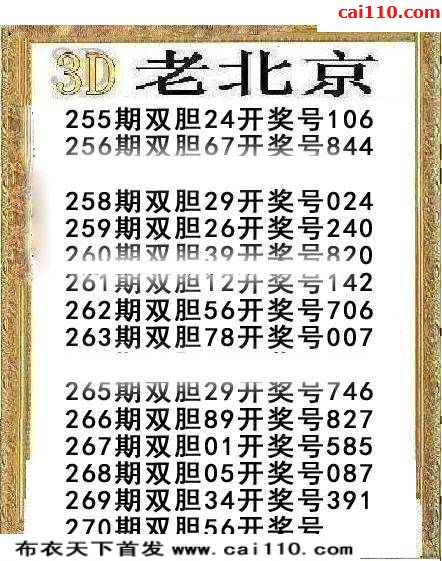 cai110.com
3D 老北京
255期双胆24开奖号106
256期双胆67开奖号844
258期双胆29开奖号024
259期双胆26开奖号240
260期双胆39开奖号820
261期双胆12开奖号142
262期双胆56开奖号706
263期双胆78开奖号007
265期双胆29开奖号746
266期双胆89开奖号827
267期双胆01开奖号585
268期双胆05开奖号087
269期双胆34开奖号391
270期双胆56开奖号
布衣天下首发 www.cai110.com